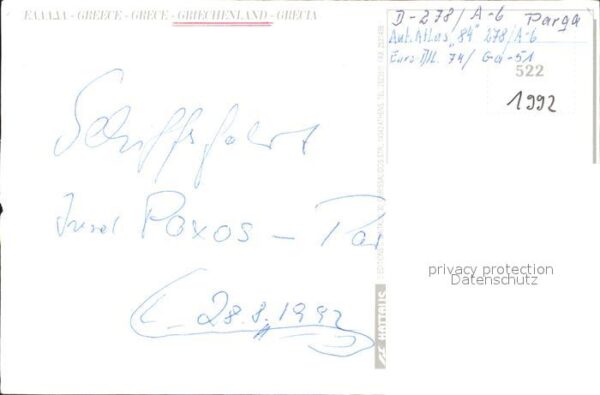 ΕΛΛΑΔΑ - GREECE - GRECE - GRIECHENLAND - GRECIA
D-278/A-6 Parga
Aut.Atlas "84" 278/A-6
"74/ Ga-51
522
1992
Schiffsfahrt
Insel Paxos - Par
28.8.1992
HAITALIS
privacy protection
Datenschutz